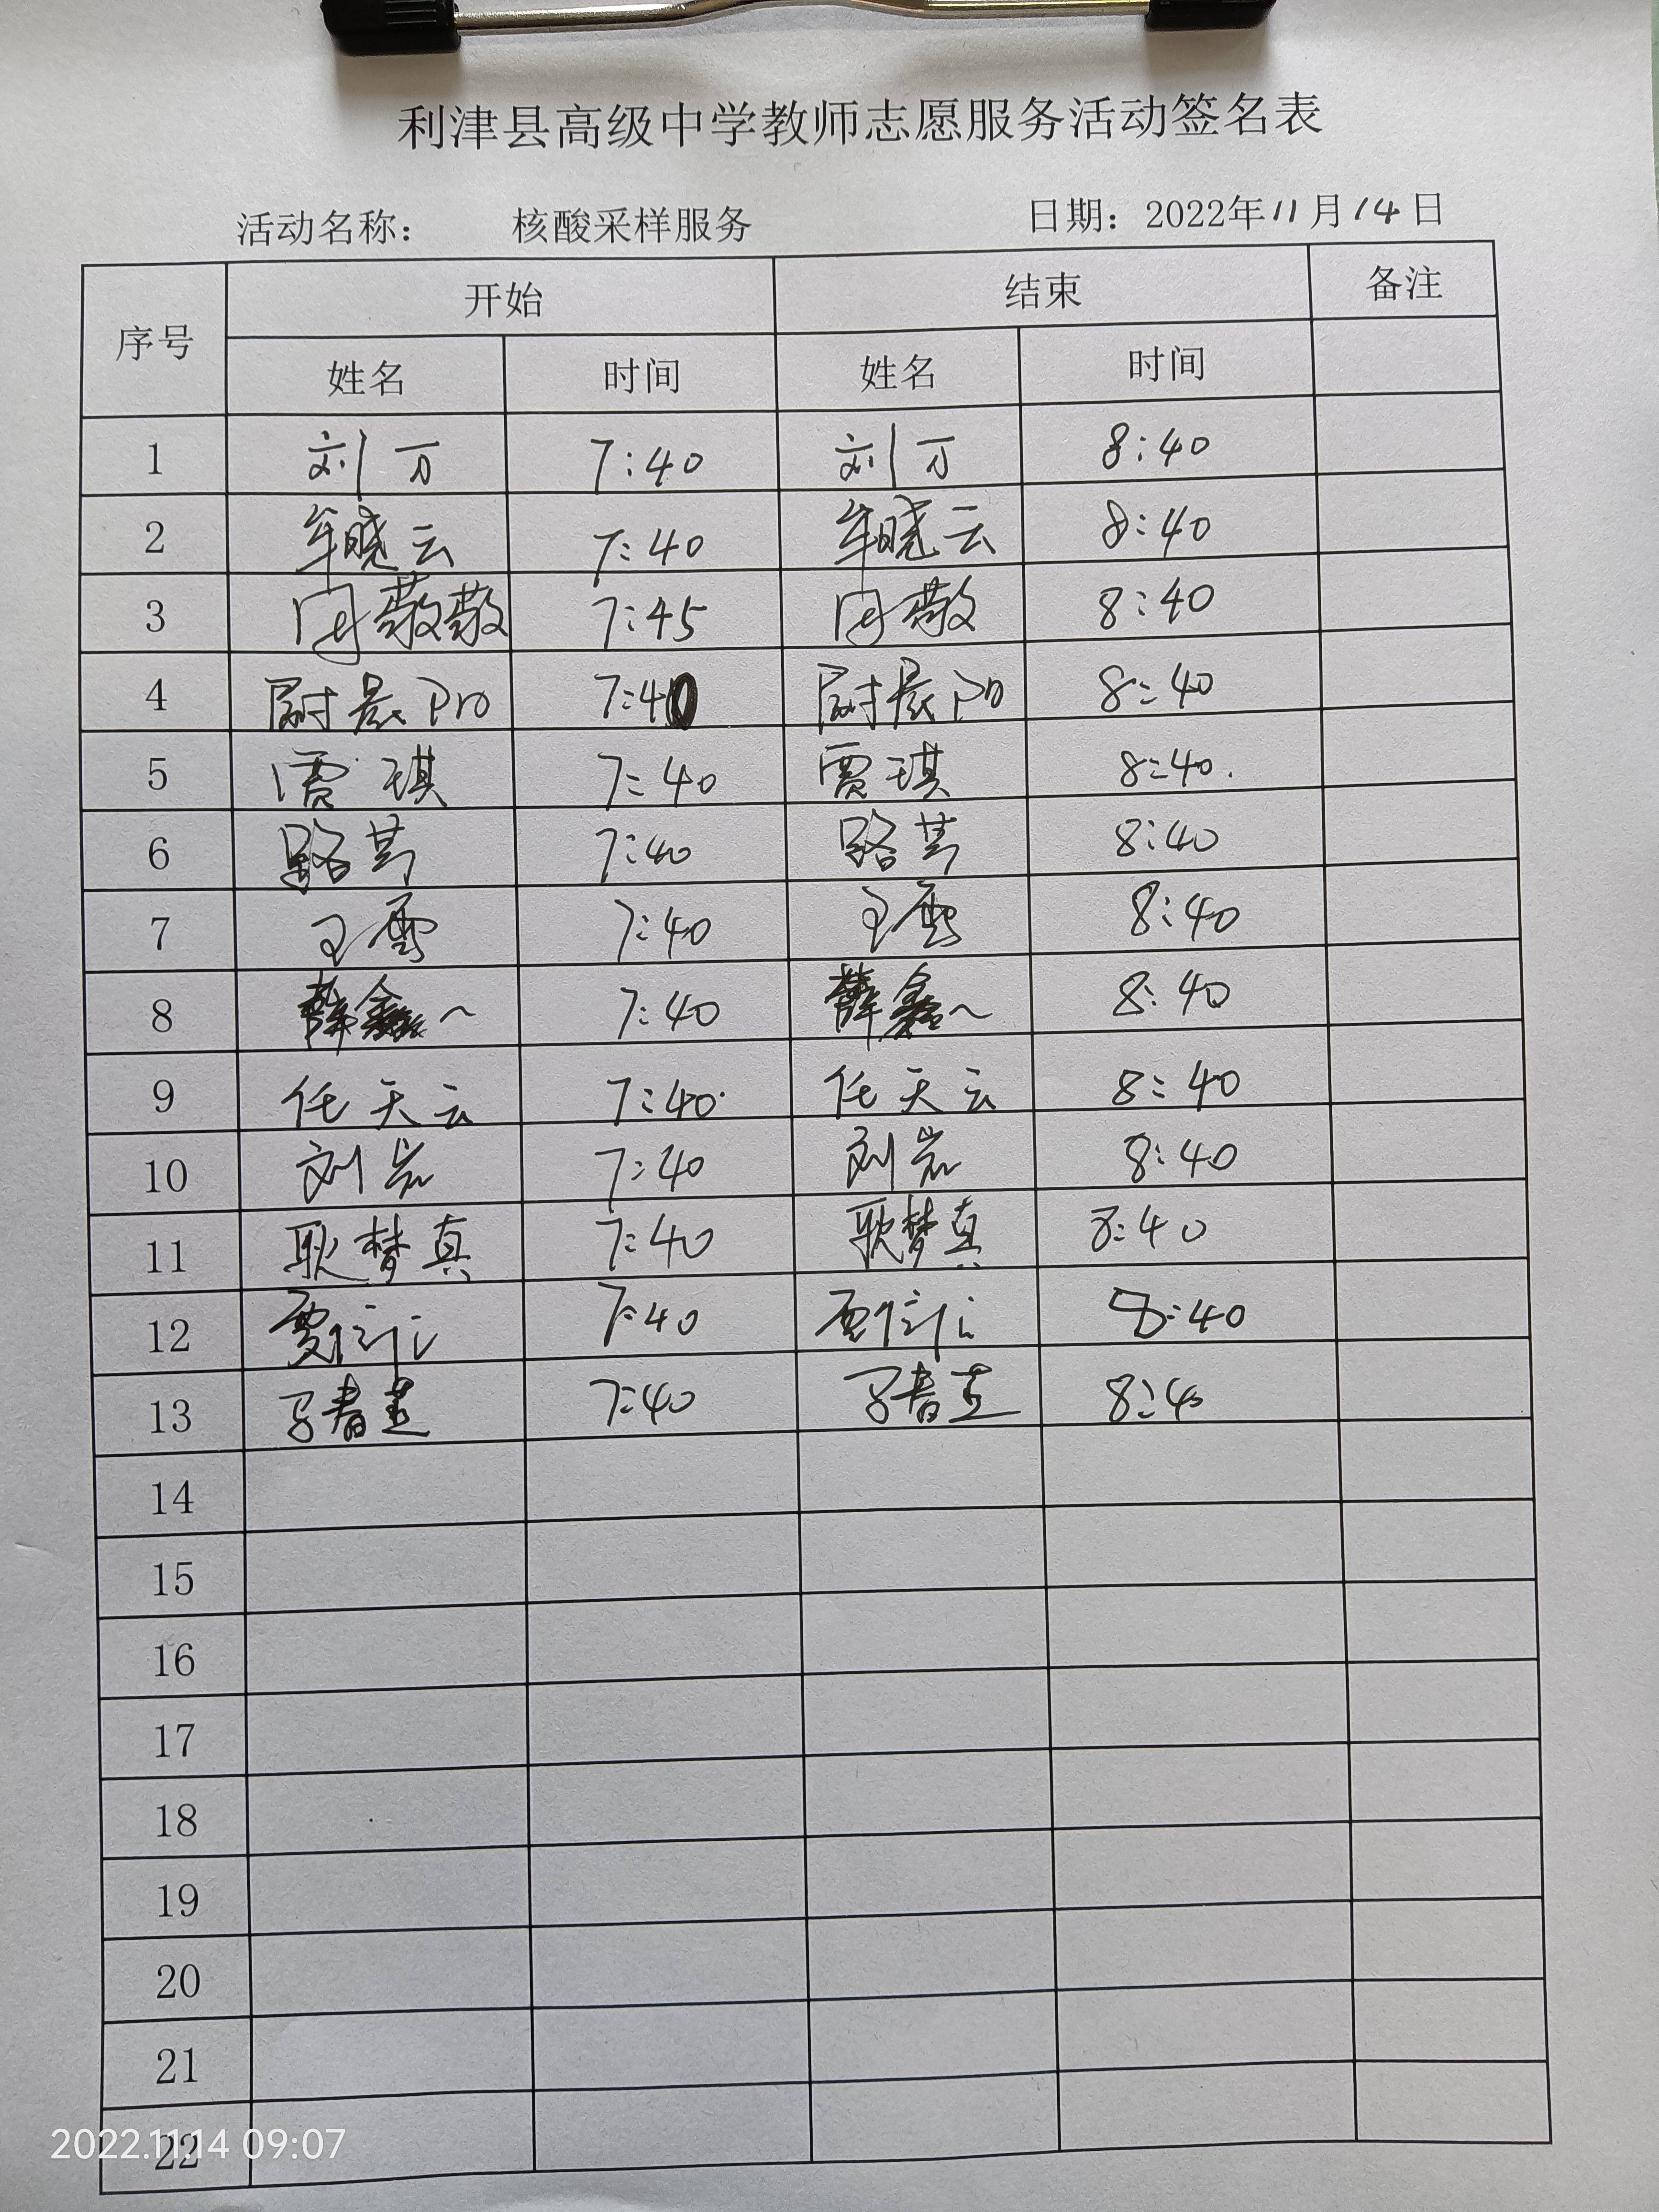 利津县高级中学教师志愿服务活动签名表
活动名称： 核酸采样服务 日期：2022年11月14日
序号 开始 结束 备注
姓名 时间 姓名 时间
1 刘万 7:40 刘万 8:40
2 牟晓云 7:40 牟晓云 8:40
3 7:45 8:40
4 尉晨Pro 7:40 尉晨Pro 8:40
5 贾琪 7:40 贾琪 8:40.
6 路芳 7:40 路芳 8:40
7 王雪 7:40 王雪 8:40
8 薛鑫~ 7:40 薛鑫~ 8:40
9 任天云 7:40. 任天云 8:40
10 刘岩 7:40 刘岩 8:40
11 耿梦真 7:40 耿梦真 8:40
12 7:40 8:40
13 7:40 8:40
14
15
16
17
18
19
20
21
22
2022.11.14 09:07